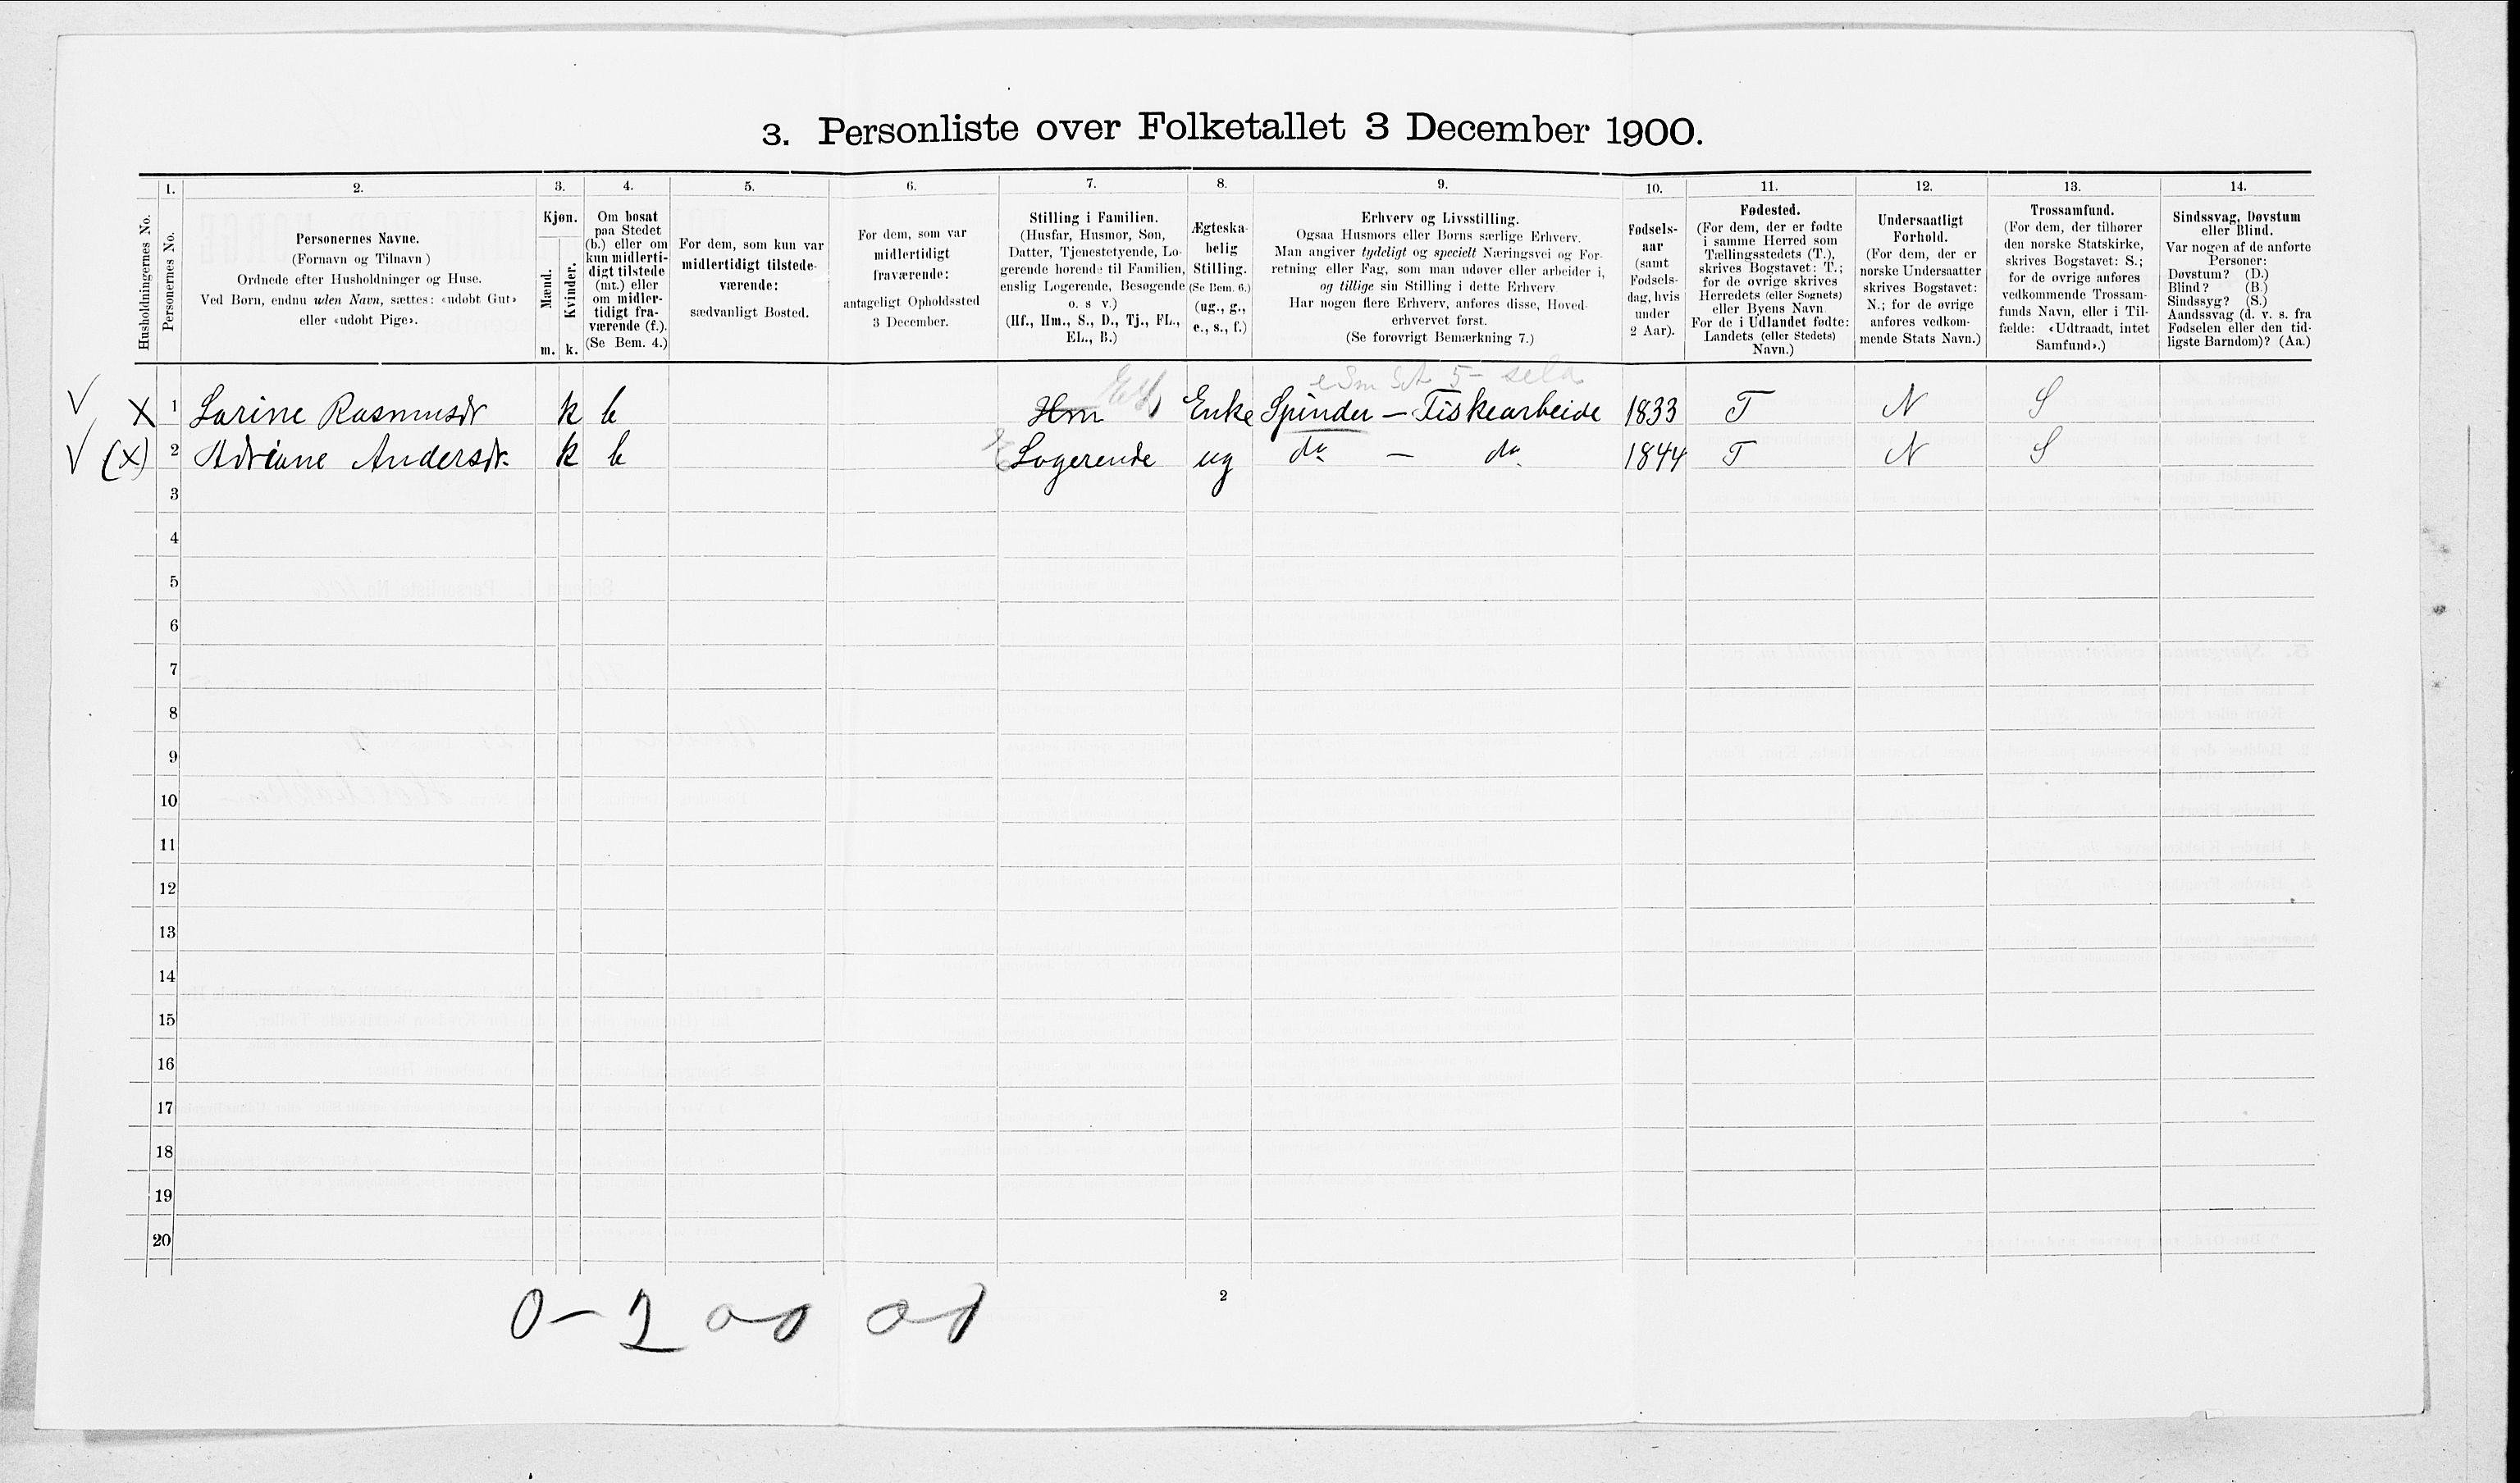 3. Personliste over Folketallet 3 December 1900.
1. 2. 3. 4. 5. 6. 7. 8. 9. 10. 11. 12. 13. 14.
Husholdningernes No.
Personernes No.
Personernes Navne.
(Fornavn og Tilnavn)
Ordnede efter Husholdninger og Huse.
Ved Børn, endnu uden Navn, sættes: «udøbt Gut»
eller «udøbt Pige».
Kjøn.
Mænd.
Kvinder.
m. k.
Om bosat
paa Stedet
(b.) eller om
kun midlerti-
digt tilstede
(mt.) eller
om midler-
tidigt fra-
værende (f.).
(Se Bem. 4.)
For dem, som kun var
midlertidigt tilstede-
værende:
sædvanligt Bosted.
For dem, som var
midlertidigt
fraværende:
antageligt Opholdssted
3 December.
Stilling i Familien.
(Husfar, Husmor, Søn,
Datter, Tjenestetyende, Lo-
gerende hørende til Familien,
enslig Logerende, Besøgende
o. s v.)
(Hf., Hm., S., D., Tj., FL.,
EL., B.)
Ægteska-
belig
Stilling.
(Se Bem. 6.)
(ug., g.,
e., s., f.)
Erhverv og Livsstilling.
Ogsaa Husmors eller Børns særlige Erhverv.
Man angiver tydeligt og specielt Næringsvei og For-
retning eller Fag, som man udøver eller arbeider i,
og tillige sin Stilling i dette Erhverv
Har nogen flere Erhverv, anføres disse, Hoved-
erhvervet først.
(Se forøvrigt Bemærkning 7.)
Fødsels-
aar
(samt
Fødsels-
dag, hvis
under
2 Aar).
Fødested.
(For dem, der er fødte
i samme Herred som
Tællingsstedets (T.),
skrives Bogstavet: T.;
for de øvrige skrives
Herredets (eller Sognets)
eller Byens Navn
For de i Udlandet fødte:
Landets (eller Stedets)
Navn.)
Undersaatligt
Forhold.
(For dem, der er
norske Undersaatter
skrives Bogstavet:
N.; for de øvrige
anføres vedkom-
mende Stats Navn.)
Trossamfund.
(For dem, der tilhører
den norske Statskirke,
skrives Bogstavet: S.;
for de øvrige anføres
vedkommende Trossam-
funds Navn, eller i Til-
fælde: «Udtraadt, intet
Samfund».)
Sindssvag, Døvstum
eller Blind.
Var nogen af de anførte
Personer:
Døvstum? (D.)
Blind? (B.)
Sindssyg? (S.)
Aandssvag (d. v. s. fra
Fødselen eller den tid-
ligste Barndom)? (Aa.)
X 1 Larine Rasmusdr k b Hm Enke Spinder – Fiskearbeide 1833 T N S
(X) 2 Adriane Andersdr. k b Logerende ug do – do 1844 T N S
3
4
5
6
7
8
9
10
11
12
13
14
15
16
17
18
19
20
0 – 2 0–0 0–0
2